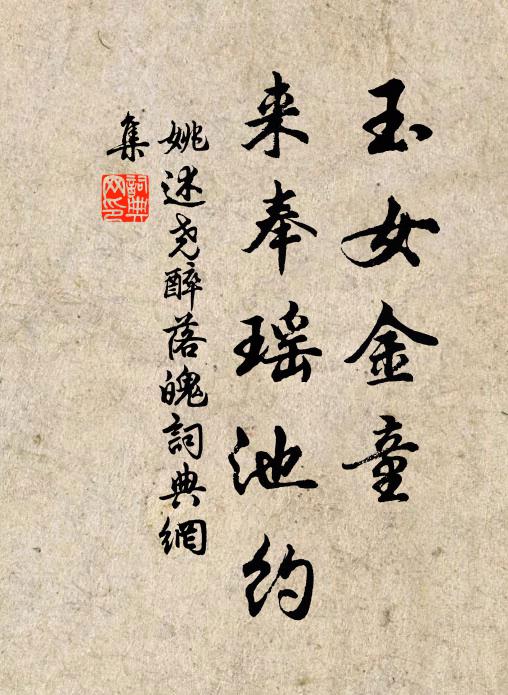 玉女金童
来奉瑶池约
姚述尧醉落魄詞典網
集
詞典
网印